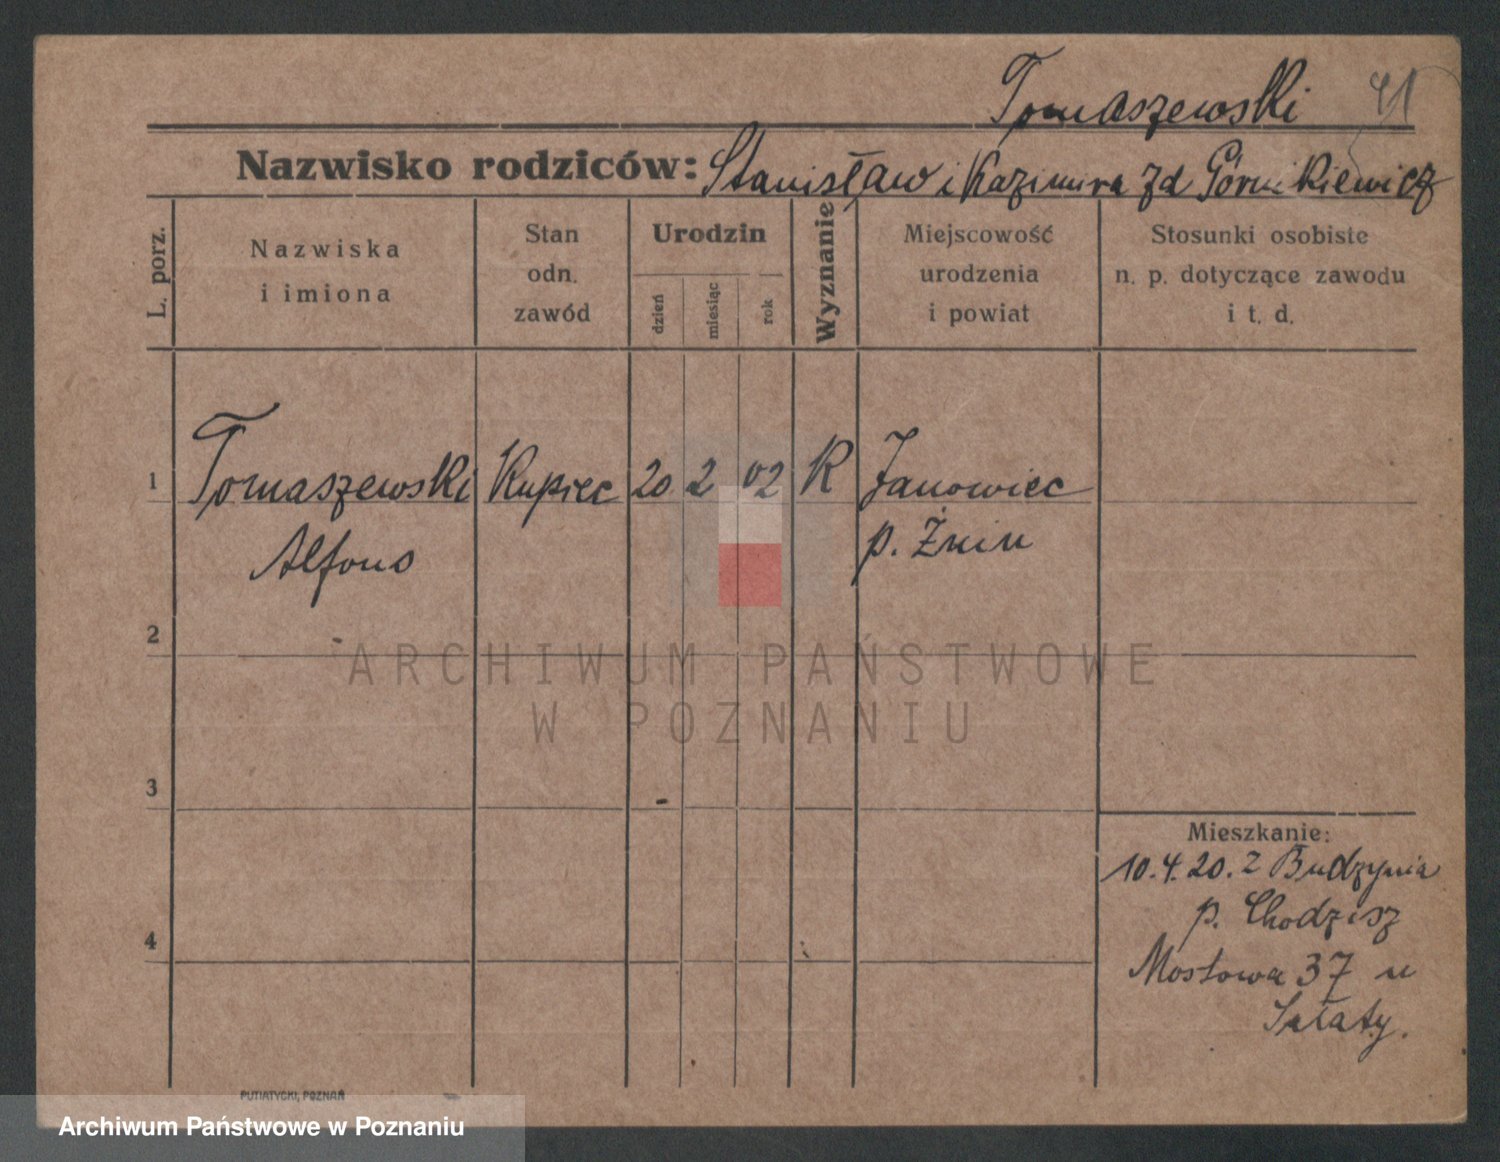 Tomaszewski 41
Nazwisko rodziców: Stanisław i Kazimira zd Górnikiewicz
L. porz.
Nazwiska
i imiona
Stan
odn.
zawód
Urodzin
dzień
miesiąc
rok
Wyznanie
Miejscowość
urodzenia
i powiat
Stosunki osobiste
n. p. dotyczące zawodu
i t. d.
1 Tomaszewski Kupiec 20 2 02 R Janowiec
Alfons p. Żnin
2
ARCHIWUM PAŃSTWOWE
W POZNANIU
3
Mieszkanie:
10.4.20. z Budzynia
p. Chodzisz
4
Mostowa 37 u
Sałaty.
PUTIATYCKI, POZNAŃ
Archiwum Państwowe w Poznaniu